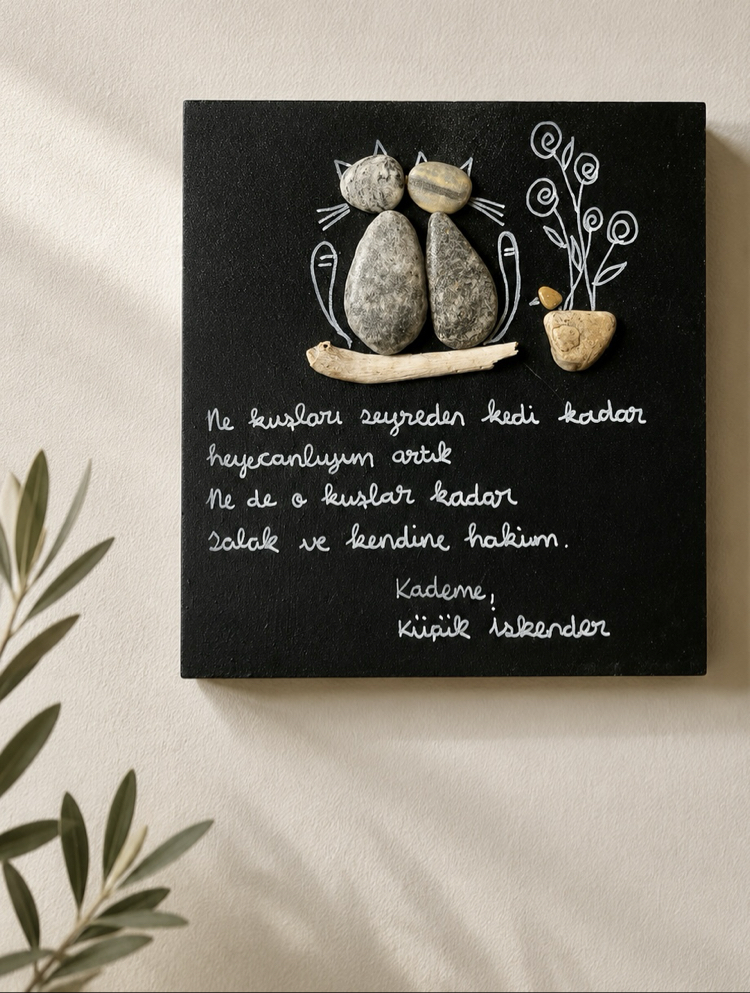 Ne kuşları seyreden kedi kadar
heyecanlıyım artık
Ne de o kuşlar kadar
salak ve kendine hakim.
Kademe,
Küçük İskender